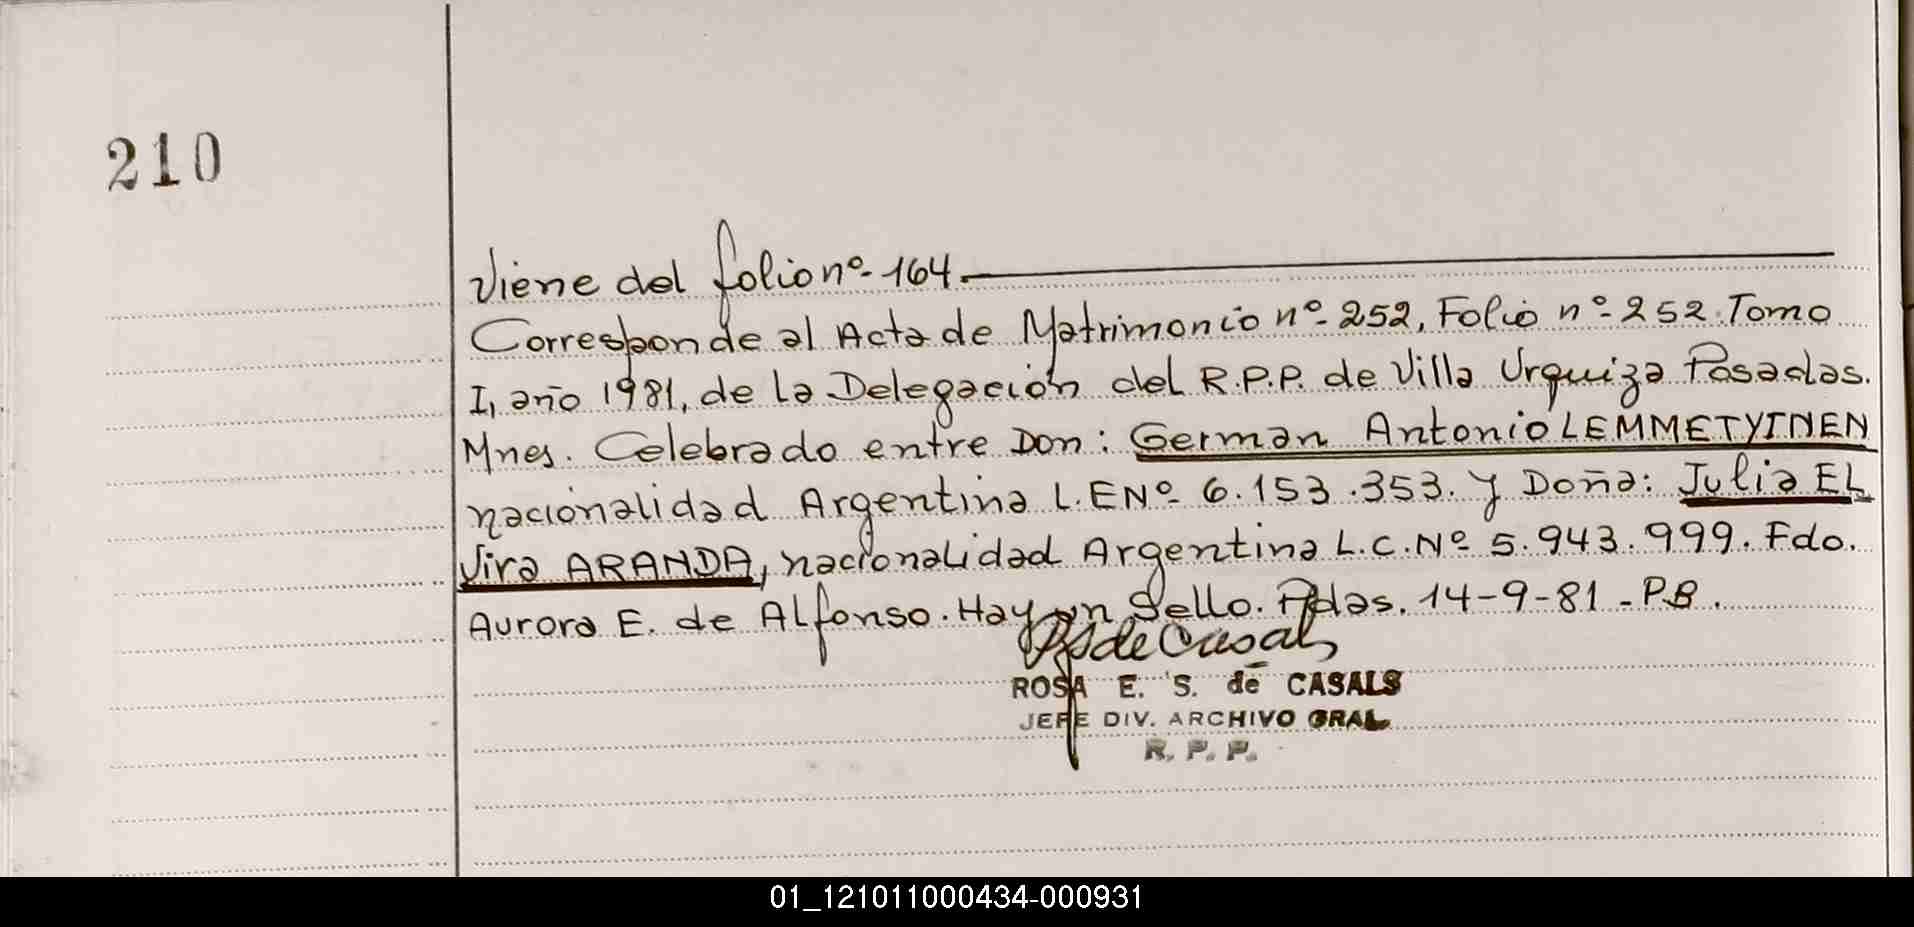 210
Viene del folio nº- 164.
Corresponde al Acta de Matrimonio nº- 252, Folio nº- 252. Tomo
I, año 1981, de la Delegación del R.P.P. de Villa Urquiza Posadas.
Mnes. Celebrado entre Don: German Antonio LEMMETYINEN
nacionalidad Argentina L.E Nº- 6.153.353. y Doña: Julia EL
vira ARANDA, nacionalidad Argentina L.C. Nº- 5.943.999. Fdo.
Aurora E. de Alfonso. Hay un Sello. Pdas. 14-9-81 - P.B.
de Casals
ROSA E. S. de CASALS
JEFE DIV. ARCHIVO GRAL
R. P. P.
01_121011000434-000931